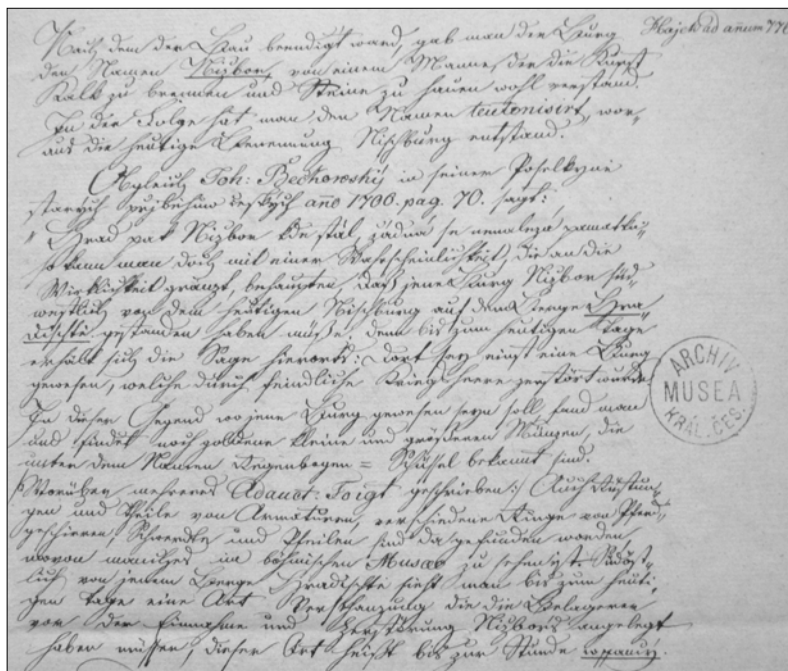 Nach dem der Bau beendigt ward, gab man der Burg
Hajek ad annum 776
den Namen Nizbor, von einem Manne, der die Kunst
Kalk zu brennen und Steine zu hauen wohl verstand.
In der Folge hat man den Namen teutonisirt, wor-
aus die heutige Benennung Nischburg entstand.
Obgleich Joh: Beckowsky in seiner Poselkyne
starych přjběhuw českých año 1700. pag. 70. sagt:
" Hrad pak Nizbor kde stál, žádná se nenalezá pamatka
so kann man doch mit einer Wahrscheinlichkeit, die an die
Wirklichkeit gränzt, behaupten, daß jene Burg Nizbor süd-
westlich von dem heutigen Nischburg auf dem Berge Hra-
dischtě gestanden haben müße, denn bis zum heutigen Tage
erhält sich die Sage hierorts: dort sey einst eine Burg
gewesen, welche durch feindliche Kriegsheere zerstört wurde.
In dieser Gegend wo jene Burg gewesen seyn soll, fand man
und findet noch goldene kleine und größere Münzen, die
unter dem Namen Regenbogen = Schüssel bekannt sind.
/:Worüber mehreres Adauct: Voigt geschrieben:/ Auch Rüstun-
gen und Theile von Armaturen, verschiedene Ringe von Pferd-
geschirren, Schwerdte und Pfeilen sind da gefunden worden,
wovon manches im böhmischen Museo zu sehen ist. Südöst-
lich von jenem Berge Hradischtě sieht man bis zum heuti-
gen Tage eine Art Verschanzung die die Belagerer
vor der Einnahme und Zerstörung Nizbors angelegt
haben müssen, dieser Ort heißt bis zur Stunde
ARCHIV
MUSEA
KRÁL. ČES.